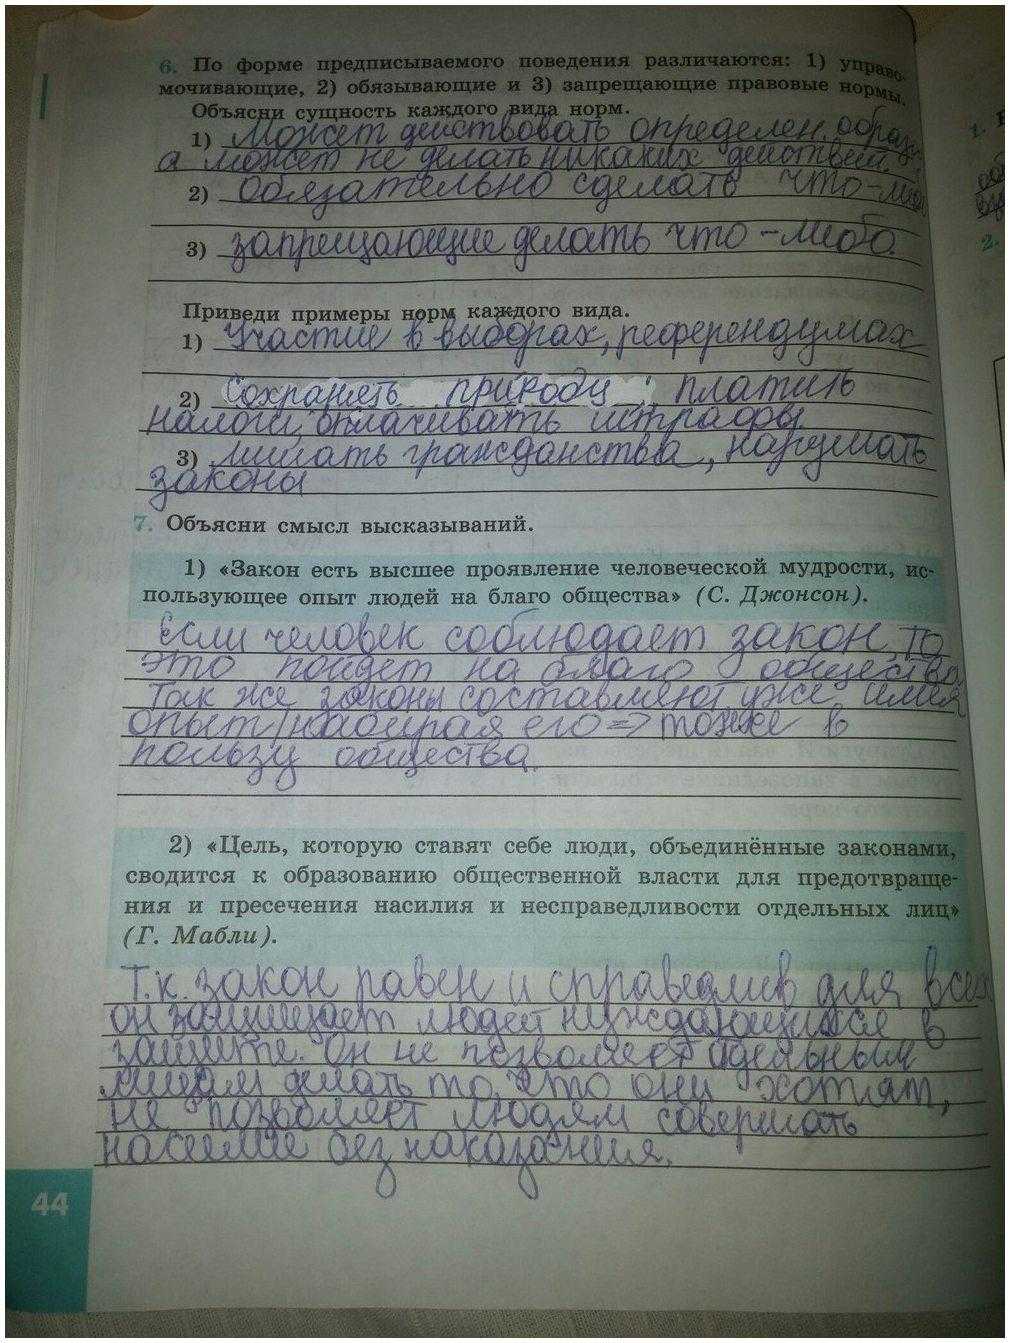 6. По форме предписываемого поведения различаются: 1) управо-
мочивающие, 2) обязывающие и 3) запрещающие правовые нормы.
Объясни сущность каждого вида норм.
1) Может действовать определен. образ
а может не делать никаких действий.
2) обязательно сделать что-либо
3) запрещающие делать что-либо.
Приведи примеры норм каждого вида.
1) Участие в выборах, референдумах
2) Сохранять природу, платить
налоги, оплачивать штрафы
3) лишать гражданства, нарушать
законы
7. Объясни смысл высказываний.
1) «Закон есть высшее проявление человеческой мудрости, ис-
пользующее опыт людей на благо общества» (С. Джонсон).
Если человек соблюдает закон, то
это пойдет на благо общества
так же законы составляют уже имея
опыт/набирая его => тоже в
пользу общества.
2) «Цель, которую ставят себе люди, объединённые законами,
сводится к образованию общественной власти для предотвраще-
ния и пресечения насилия и несправедливости отдельных лиц»
(Г. Мабли).
Т.к. закон равен и справедлив для всех
он защищает людей нуждающихся в
защите. Он не позволяет отдельным
лицам делать то, что они хотят,
не позволяет людям совершать
насилие без наказания.
44
1.
2.